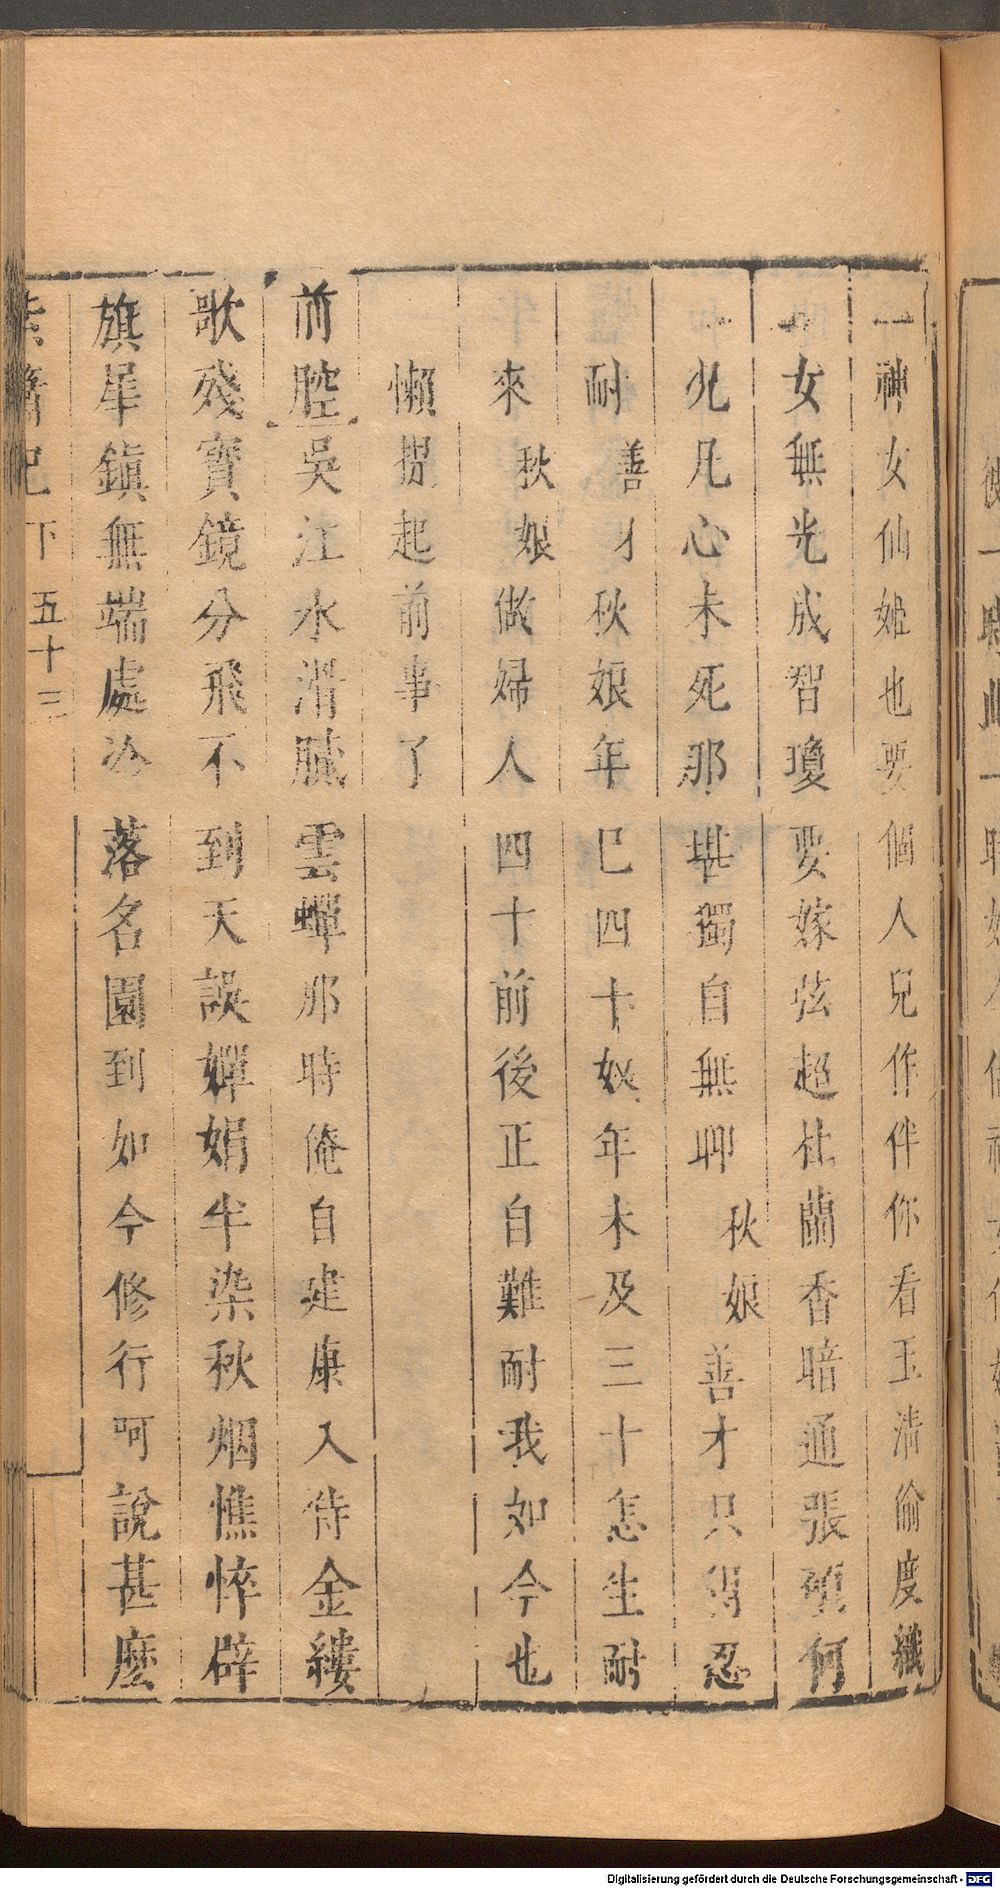 神女仙姫也要個人兒作伴你看玉清偷度織
女無光成智瓊要嫁弦超杜蘭香暗通張碩何
況凡心未死那堪獨自無聊 秋娘 善才只得忍
耐 善才 秋娘年巳四十奴年未及三十怎生耐
來 秋娘 做婦人四十前後正自難耐我如今也
懶揑起前事了
前腔 吳江水滑膩雲蟬那時俺自建康入侍金縷
歌殘寳鏡分飛不到天誤嬋娟半染秋烟憔悴辟
旗犀鎮無端處冷落名園到如今修行呵說甚麽
紫簫記 下 五十三
Digitalisierung gefördert durch die Deutsche Forschungsgemeinschaft - DFG